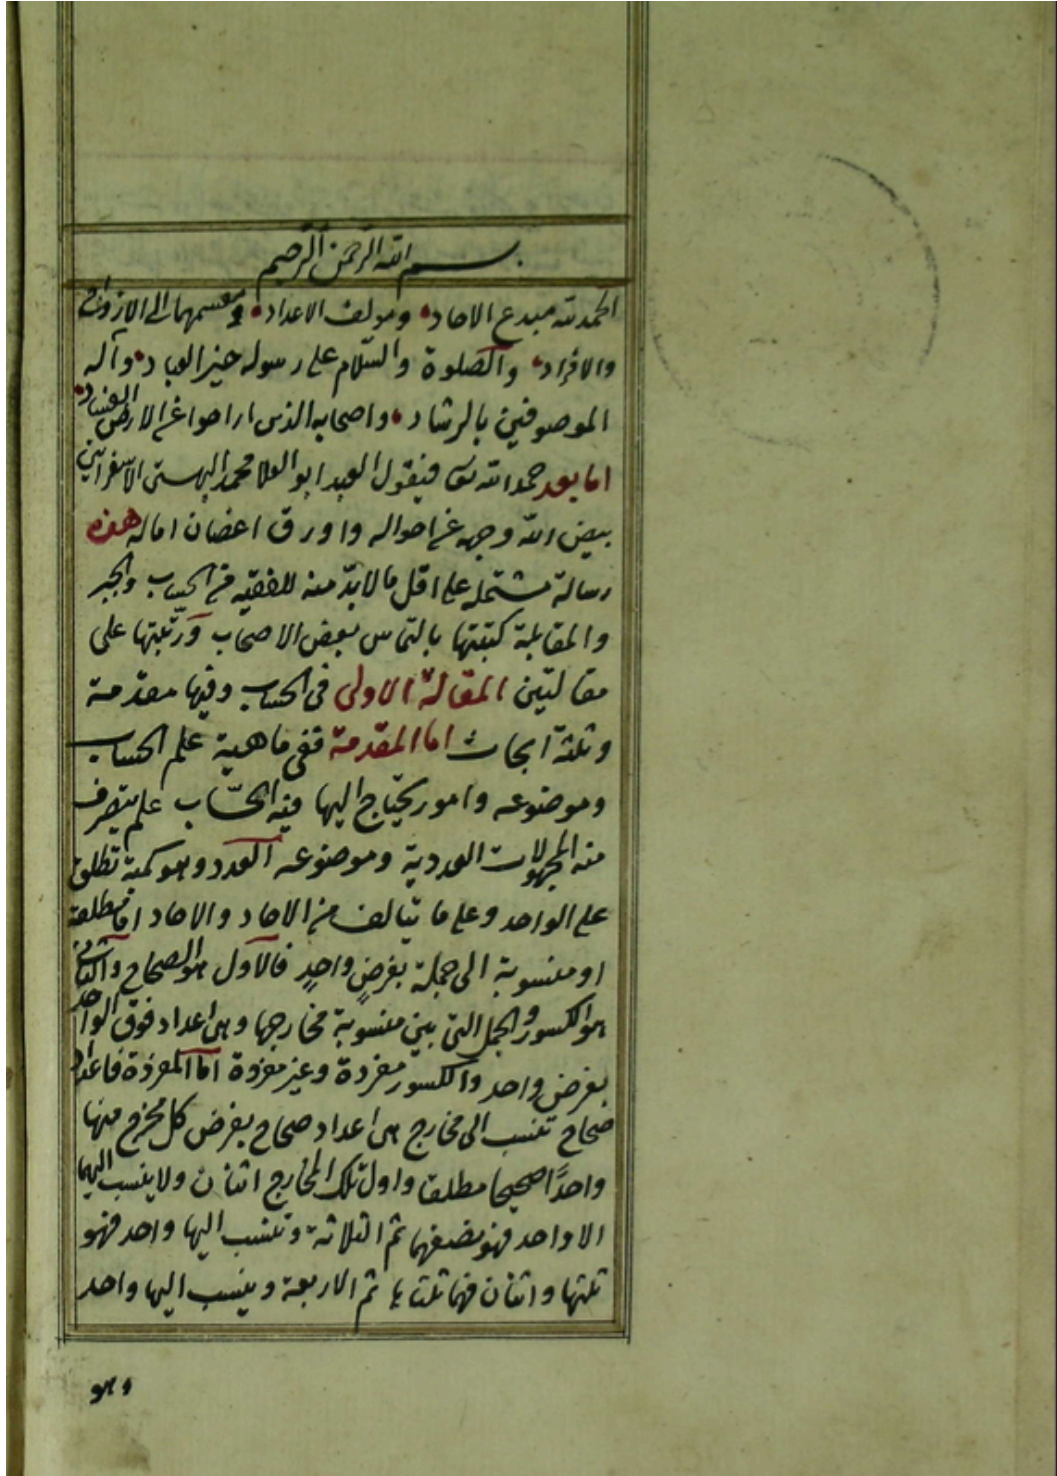 بسم الله الرحمن الرحيم
الحمد لله مبدع الاحاد ومولف الاعداد ومقسمهما الى الازواج
والافراد والصلوة والسلام على رسوله خير العباد وآله
الموصوفين بالرشاد واصحابه الذين ازاحوا عن الارض الفساد
اما بعد حمد الله تعالى فيقول العبد ابو العلا محمد البهشتي الاسفرايني
بيض الله وجهه احواله واورق اغصان اماله هذه
رسالة مشتملة على اقل ما لا بد منه للفقيه من الحساب والجبر
والمقابلة كتبتها بالتماس بعض الاصحاب ورتبتها على
مقالتين المقالة الاولى فى الحساب وفيها مقدمة
وثلثة ابحاث اما المقدمة ففى ماهية علم الحساب
وموضوعه وامور يحتاج اليها فيه الحساب علم يتعرف
منه المجهولات العددية وموضوعه العدد وهو كمية تطلق
على الواحد وعلى ما يتالف من الاحاد والاحاد اما مطلقة
او منسوبة الى جملة بفرضٍ واحدٍ فالاول هو الصحاح والثانى
هو الكسور والجمل التى بين منسوبة مخارجها وهى اعداد فوق الواحد
بفرض واحد والكسور مفردة وغير مفردة اما المفردة فاعداد
صحاح تنسب الى مخارج هى اعداد صحاح بفرض كل مخرج منها
واحدًا صحيحا مطلقا واول تلك المخارج اثنان ولا ينسب اليهما
الا واحد فهو نصفهما ثم الثلاثة وتنسب اليها واحد فهو
ثلثها واثنان فهما ثلثاها ثم الاربعة وينسب اليها واحد
وهو